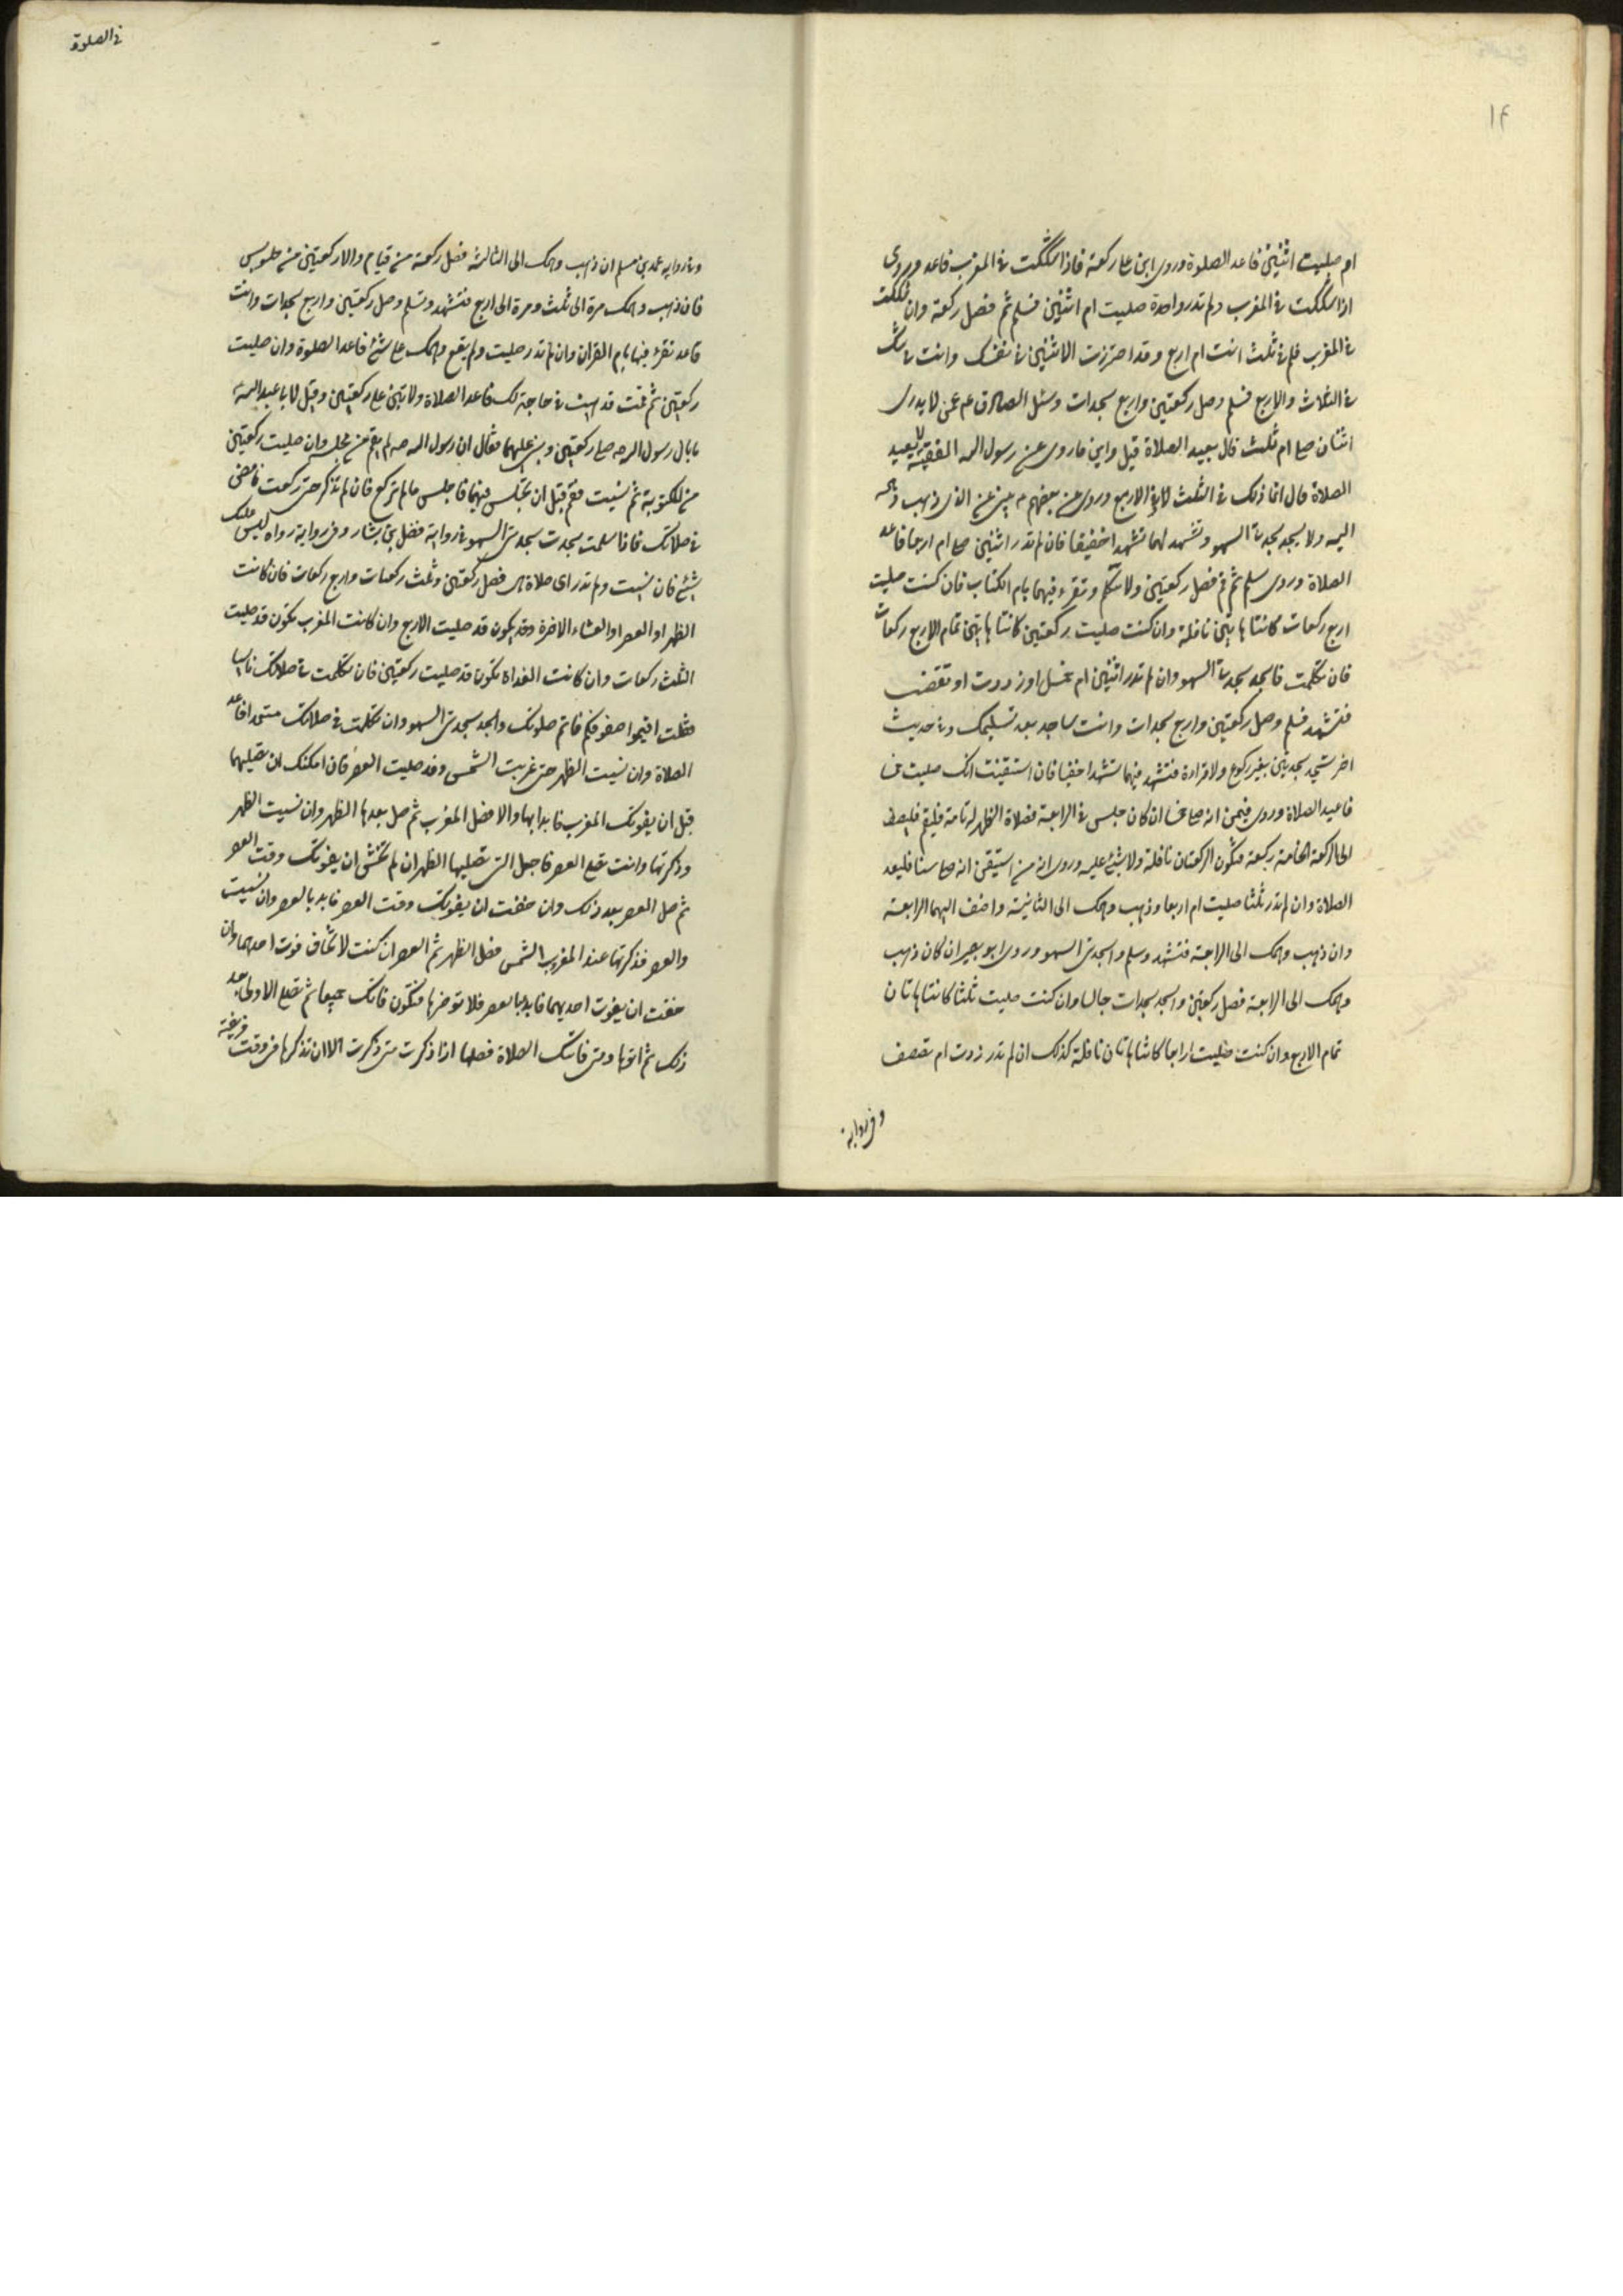 ١٤
ام صليت اثنتين فاعد الصلوة وروى ابن على ركعة فاذا شككت فى المغرب فاعد وروى
اذا شككت فى المغرب ولم تدر واحدة صليت ام اثنتين فسلم ثم فصل ركعة وان شككت
فى المغرب فلم فى ثلث انت ام اربع وقد احرزت الاثنتين فى نفسك وانت فى شك
فى الثلاث والاربع فسلم وصل ركعتين واربع سجدات وسئل الصادق ع م عمن لا يدرى
اثنتان صلى ام ثلث قال يعيد الصلاة قيل واين ما روى عن رسول الله الفقيه لا يعيد
الصلاة قال انما ذلك فى الثلث والاربع وروى عن بعضهم يبنى على الذى ذهب وهمه
اليه ولا يسجد سجدتى السهو وتشهد لهما تشهدا خفيفا فان لم تدر اثنتين صلى ام اربعا فاعد
الصلاة وروى سلم ثم قم فصل ركعتين ولا تتكلم وتقرء فيهما بام الكتاب فان كنت صليت
اربع ركعات كانتا هاتين نافلة وان كنت صليت ركعتين كانتا هاتين تمام الاربع ركعات
فان تكلمت فاسجد سجدتى السهو وان لم تدر اثنتين ام خمسا او زدت او نقصت
فتشهد فسلم وصل ركعتين واربع سجدات وانت ساجد بعد تسليمك وفى حديث
اخر تسجد سجدتين بغير ركوع ولا قراءة فتشهد فيهما تشهدا خفيا فان استيقنت انك صليت خمسا
فاعيد الصلاة وروى فيمن انه صلى خمسا ان كان جلس فى الرابعة فصلاة الظهر له تامة فليقم فليضف
الى الركعة الخامسة ركعة فتكون الركعتان نافلة ولا شئ عليه وروى انه من استيقن انه صلى ستا فليعد
الصلاة وان لم تدر ثلثا صليت ام اربعا وذهب وهمك الى الثانية واضف اليهما الرابعة
وان ذهب وهمك الى الرابعة فتشهد وسلم واسجد سجدتى السهو وروى ابو بصير ان كان ذهب
وهمك الى الرابعة فصل ركعتين واسجد سجدات جالسا وان كنت صليت ثلثا كانتا هاتان
تمام الاربع وان كنت صليت اربعا كانتا هاتان نافلة كذلك ان لم تدر زدت ام نقصت
وفى رواية
فى الصلوة
وفى رواية محمد بن مسلم ان ذهب وهمك الى الثالثة فصل ركعة من قيام والا ركعتين من جلوس
فان ذهب وهمك مرة الى ثلث ومرة الى اربع فتشهد وتسلم وصل ركعتين واربع سجدات وانت
قاعد تقرء فيها بام القران وان لم تدر صليت ولم يقع وهمك على شئ فاعد الصلوة وان صليت
ركعتين ثم قمت فذهبت فى حاجة لك فاعد الصلاة ولا تبن على ركعتين وقيل لابى عبد الله
ما بال رسول الله صلى ركعتين وبنى عليهما فقال ان رسول الله صلم لم يقم من مجلسه وان صليت ركعتين
من المكتوبة ثم نسيت فقم قبل ان تجلس فيهما فاجلس ما لم تركع فان لم تذكر حتى ركعت فامض
فى صلاتك فاذا سلمت سجدت سجدتى السهو فى رواية فضل بن يسار وفى رواية رواه ليس عليك
شئ فان نسيت ولم تدر اى صلاة هى فصل ركعتين وثلث ركعات واربع ركعات فان كانت
الظهر او العصر او العشاء الاخرة وقد يكون قد صليت الاربع وان كانت المغرب تكون قد صليت
الثلث ركعات وان كانت الغداة تكون قد صليت ركعتين فان تكلمت فى صلاتك ناسيا
فقلت اقيموا صفوفكم فاتم صلوتك واسجد سجدتى السهو وان تكلمت فى صلاتك متعمدا فاعد
الصلاة وان نسيت الظهر حتى غربت الشمس وقد صليت العصر فان امكنك ان تصليهما
قبل ان يفوتك المغرب فابدا بها والا فصل المغرب ثم صل بعدها الظهر وان نسيت الظهر
وذكرتها وانت تصلى العصر فاجعل التى تصليها الظهر ان لم تخش ان يفوتك وقت العصر
ثم صل العصر بعد ذلك وان خفت ان يفوتك وقت العصر فابدء بالعصر وان نسيت
والعصر فذكرتهما عند المغرب الشمس فصل الظهر ثم العصر ان كنت لا تخاف فوت احدهما وان
خفت ان يفوت احديهما فابدا بالعصر فلا تؤخرها فتكون فاتتك جميعا ثم تصلى الاولى بعد
ذلك ثم اثرها ومتى فاتتك الصلاة فصلها اذا ذكرت متى ذكرت الا ان تذكرها فى وقت فريضة